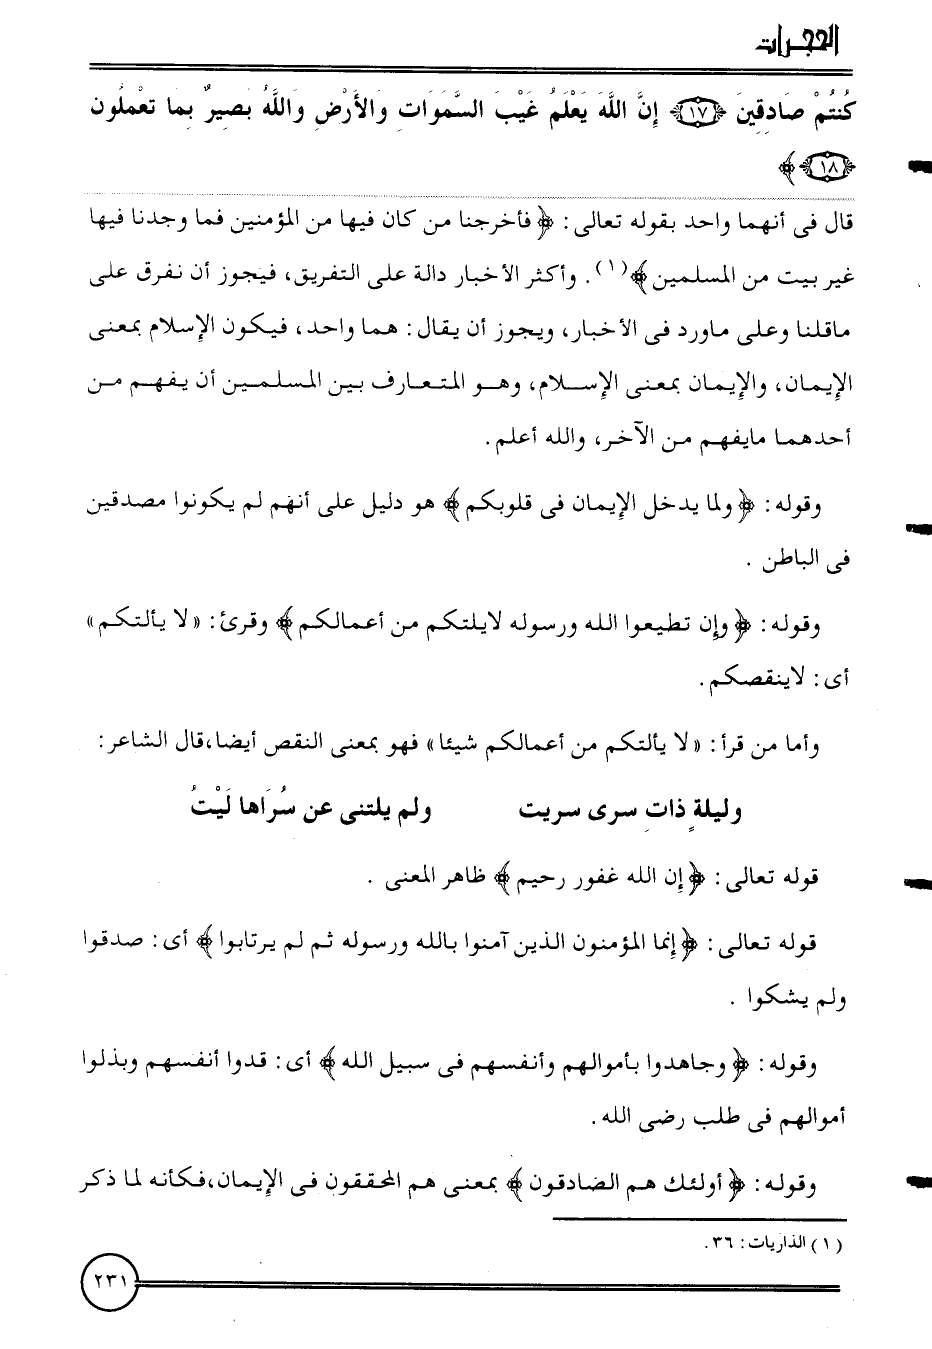 الحجرات
كُنتُمْ صَادِقِينَ ﴿١٧﴾ إِنَّ اللَّهَ يَعْلَمُ غَيْبَ السَّمَوَاتِ وَالأَرْضِ وَاللَّهُ بَصِيرٌ بِمَا تَعْمَلُونَ
﴿١٨﴾ ﴾
قال فى أنهما واحد بقوله تعالى : ﴿ فأخرجنا من كان فيها من المؤمنين فما وجدنا فيها
غير بيت من المسلمين ﴾(١) . وأكثر الأخبار دالة على التفريق، فيجوز أن نفرق على
ماقلنا وعلى ماورد فى الأخبار، ويجوز أن يقال : هما واحد، فيكون الإسلام بمعنى
الإيمان، والإيمان بمعنى الإسلام، وهو المتعارف بين المسلمين أن يفهم من
أحدهما مايفهم من الآخر، والله أعلم .
وقوله : ﴿ ولما يدخل الإيمان فى قلوبكم ﴾ هو دليل على أنهم لم يكونوا مصدقين
فى الباطن .
وقوله : ﴿ وإن تطيعوا الله ورسوله لايلتكم من أعمالكم ﴾ وقرئ : « لا يألتكم »
أى : لاينقصكم .
وأما من قرأ : « لا يألتكم من أعمالكم شيئا» فهو بمعنى النقص أيضا،قال الشاعر :
وليلةٍ ذاتِ سرى سريت ولم يلتنى عن سُرَاها لَيْتُ
قوله تعالى : ﴿ إن الله غفور رحيم ﴾ ظاهر المعنى .
قوله تعالى : ﴿ إنما المؤمنون الذين آمنوا بالله ورسوله ثم لم يرتابوا ﴾ أى : صدقوا
ولم يشكوا .
وقوله : ﴿ وجاهدوا بأموالهم وأنفسهم فى سبيل الله ﴾ أى : قدوا أنفسهم وبذلوا
أموالهم فى طلب رضى الله .
وقوله : ﴿ أولئك هم الصادقون ﴾ بمعنى هم المحققون فى الإيمان،فكأنه لما ذكر
( ١ ) الذاريات : ٣٦ .
٢٣١